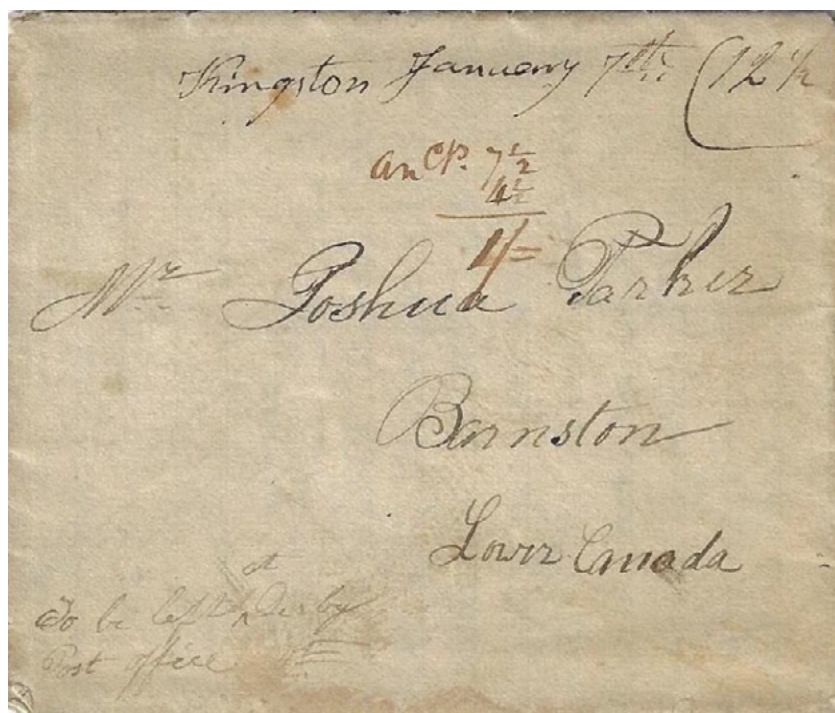 Kingston January 7th (12 ½
an CP. 7½
4½
1/=
Mr Joshua Parker
Barnston
Lower Canada
at
To be left ^ Derby
Post office